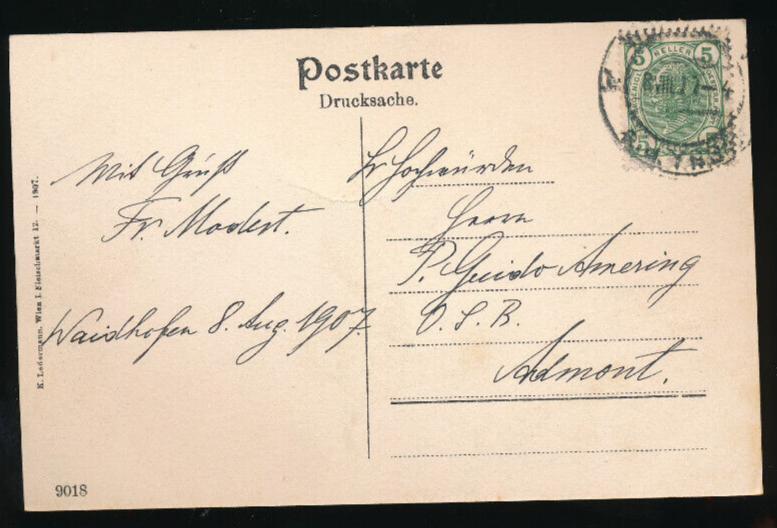 Postkarte
Drucksache.
Mit Gruß
Fr. Modest.
Waidhofen 8. Aug. 1907.
Sr Hochwürden
Herrn
P. Guido Amering
O. S. B.
Admont.
K. Ledermann, Wien I. Fleischmarkt 12. — 1907.
9018
5 HELLER 5